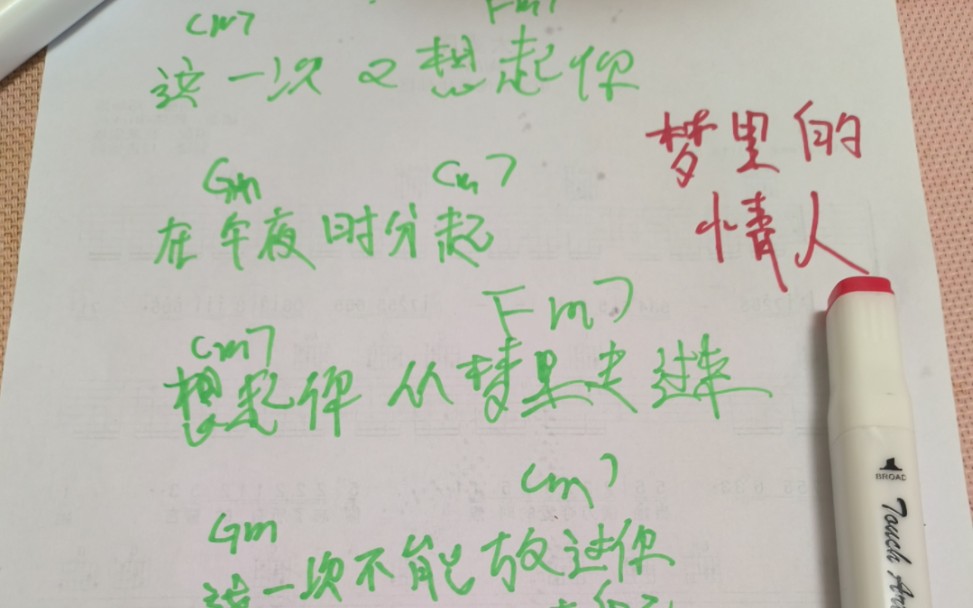 Cm7 Fm7
这一次又想起你
梦里的
情人
Gm Cm7
在午夜时分起
Cm7 Fm7
想起你从梦里走过来
Gm Cm7
这一次不能放过你
BROAD
Touch